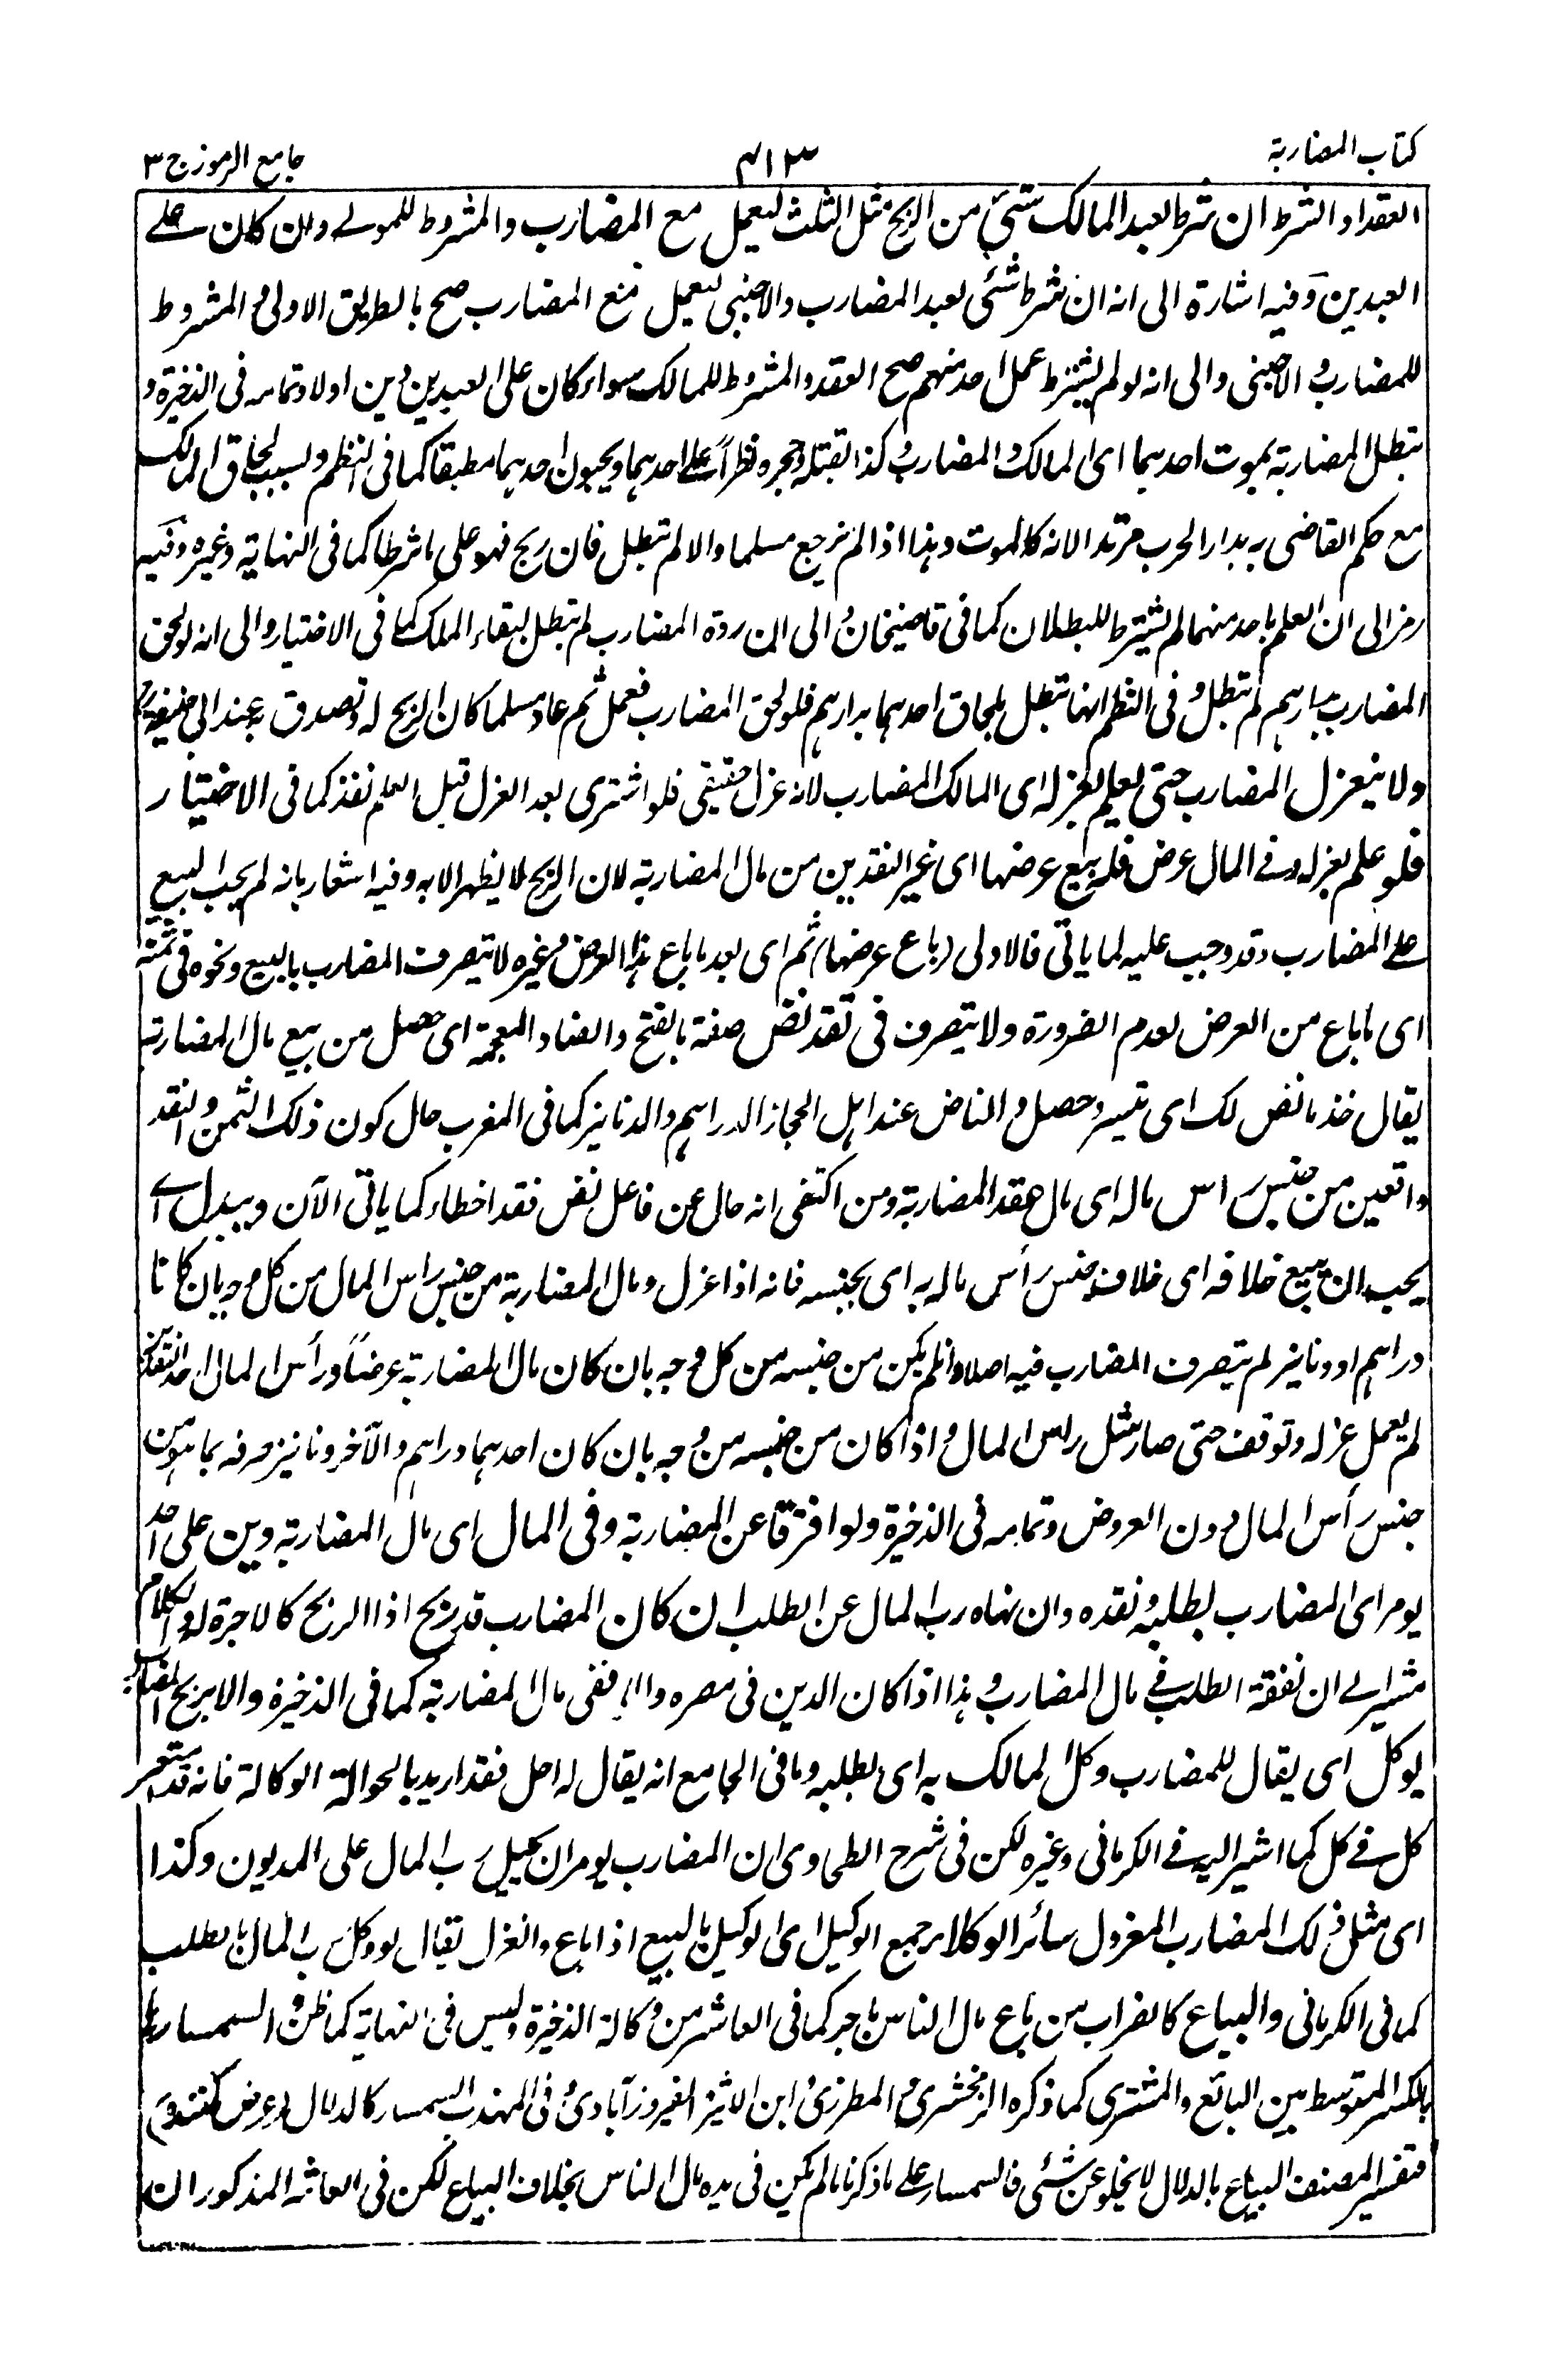 كتاب المضاربة
٤١٣
جامع الرموز ج ٣
العقد او الشرط ان شرطا لعبد المالك شئ من الربح مثل الثلث ليعمل مع المضارب والمشروط للمولے وان كان علے
العبد دين وفيه اشارة الى انه ان شرط شئى لعبد المضارب والاجنبى ليعمل مع المضارب صح بالطريق الاولى والمشروط
للمضارب والاجنبى والى انه لو لم يشترط عمل احد منهم صح العقد والمشروط للمالك سواء كان على العبد دين اولا وتمامه فى الذخيرة و
تبطل المضاربة بموت احدهما اى المالك والمضارب وكذا بقتله وحجره نظرا علے احدهما وبجنون احدهما مطبقا كما فى النظم وبسبب لحاق المالك
مع حكم القاضى به بدار الحرب مرتدا لانه كالموت وهذا اذا لم يرجع مسلما والا لم تبطل فان ربح فهو على ما شرطا كما فى النهاية وغيره وفيه
رمز الى ان العلم باحد منهما لم يشترط للبطلان كما فى قاضيخان والى ان ردة المضارب لم تبطل لبقاء الملك كما فى الاختيار والى انه لو لحق
المضارب بدارهم لم تبطل وفى النظم انها تبطل بلحاق احدهما بدارهم فلو لحق المضارب فعمل ثم عاد مسلما كان الربح له وتصدق به عند ابى حنيفة
ولا ينعزل المضارب حتى يعلم بعزله اى المالك المضارب لانه عزل حقيقى فلو اشترى بعد العزل قبل العلم نفذ كما فى الاختيار
فلو علم بعزله وفے المال عرض فله بيع عرضها اى غير النقدين من مال المضاربة لان الربح لا يظهر الا به وفيه اشعار بانه لم يجب البيع
علے المضارب وقد وجب عليه لما ياتى فالاولى (باع عرضها) ثم اى بعد ما باع هذا العرض وغيره لا يتصرف المضارب بالبيع ونحوه فى ثمنه
اى ما باع من العرض لعدم الضرورة ولا يتصرف فى نقد نض صفة بالفتح والضاد المعجمة اى حصل من بيع مال المضاربة
يقال خذ ما نض لك اى تيسر وحصل والناض عند اهل الحجاز الدراهم والدنانير كما فى المغرب حال كون ذلك الثمن والنقد
واقعين من جنس راس ماله اى مال عقد المضاربة ومن اكتفى انه حال عن فاعل نض فقد اخطاء كما ياتى الآن ويبدل اے
يجب ان يبيع خلافه اى خلاف جنس رأس ماله به اى بجنسه فانه اذا عزل ومال المضاربة من جنس راس المال من كل وجه بان كانا
دراهم او دنانير لم يتصرف المضارب فيه اصلا وان لم يكن من جنسه من كل وجه بان كان مال المضاربة عرضا ورأس المال احد النقدين
لم يعمل عزله وتوقف حتى صار مثل راس المال واذا كان من جنسه من وجه بان كان احدهما دراهم والآخر دنانير صرفه بما هو من
جنس رأس المال دون العروض وتمامه فى الذخيرة ولو افترقا عن المضاربة وفى المال اى مال المضاربة دين على احد
يومر اى المضارب بطلبه ونقده وان نهاه رب المال عن الطلب ان كان المضارب قد ربح اذ الربح كالاجرة له والكلام
مشير الے ان نفقة الطلب فے مال المضارب وهذا اذا كان الدين فى مصره والا ففى مال المضاربة كما فى الذخيرة والا يربح المضارب
يوكل اى يقال للمضارب وكل المالك به اى بطلبه وما فى الجامع انه يقال له احل فقد اريد بالحوالة الوكالة فانه قد يستعير
كل فے كل كما اشير اليه فے الكرمانى وغيره لكن فى شرح الطحاوى ان المضارب يومر ان يحيل رب المال على المديون وكذا
اى مثل ذلك المضارب المعزول سائر الوكلاء جميع الوكيل اى الوكيل بالبيع اذا باع وانعزل يقال له وكل رب المال بالطلب
كما فى الكرمانى والبياع كالضراب من باع مال الناس باجر كما فى العاشر من وكالة الذخيرة وليس فى النهاية كما ظن والسمسار
بالكسر المتوسط بين البائع والمشترى كما ذكره الزمخشرى والمطرزى وابن الاثير والفيروزآبادى وفى المهذب السمسار كالدلال
فتفسير المصنف البياع بالدلال لا يخلو عن شئى فالسمسار علے ما ذكرنا ما لم يكن فى يده مال الناس بخلاف البياع لكن فى العاشر المذكور ان